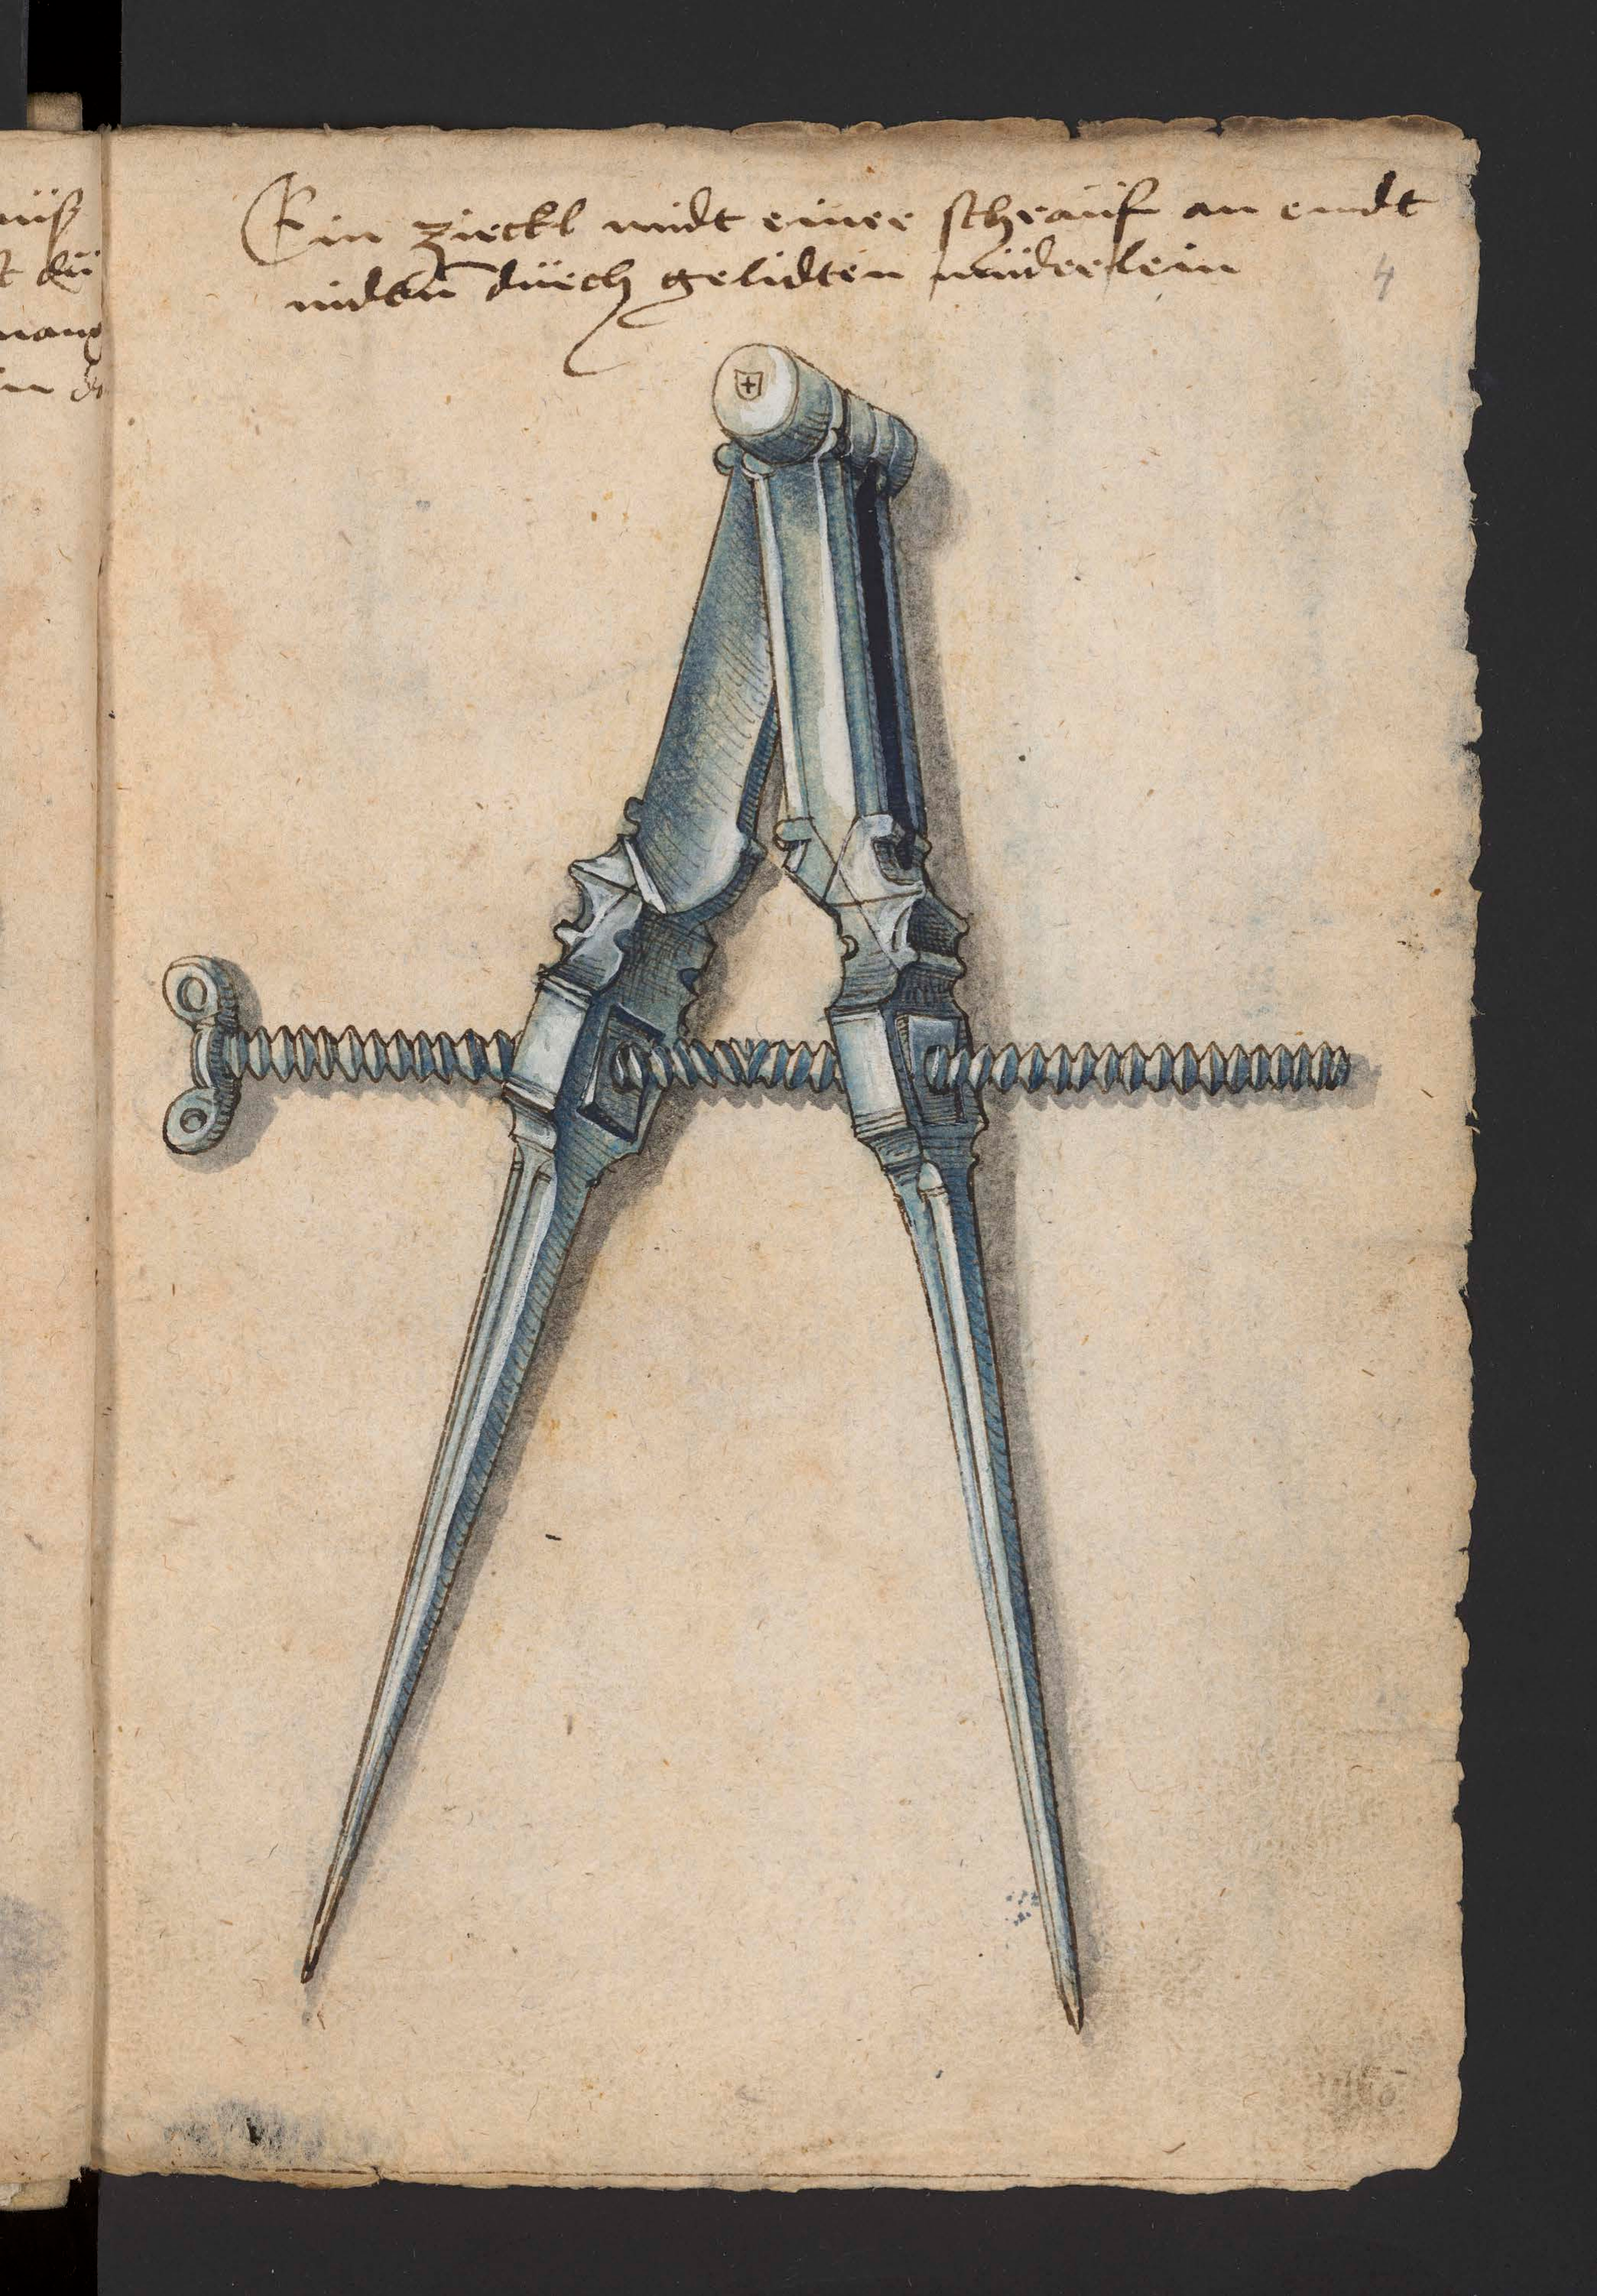 nüß
Ein zirckl midt einer schrauf an endt
midtn dürch gelidten müderlein
4